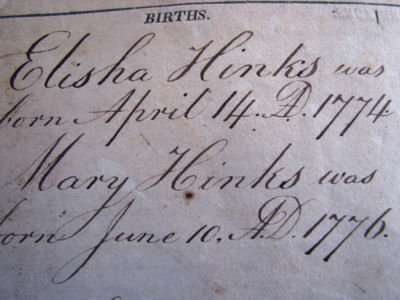 BIRTHS.
Elisha Hinks was
born April 14. AD. 1774
Mary Hinks was
born June 10. A.D. 1776.